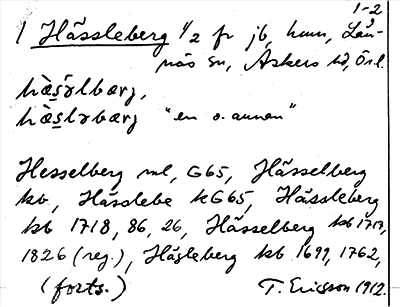 1-2
1 Hässleberg 1/2 fr jb, hmn, Lån-
näs sn, Askers hd, Örel.
hä̀səlbærj,
hä̀slərbærj "en o. annan"
Hesselberg ml, G65, Hässelberg
kb, Hässlebe kG65, Hässleberg
kb 1718, 86, 26, Hässelberg kb 1717,
1826 (reg.), Häsleberg kb 1699, 1762,
(forts.) T. Ericsson 1912.